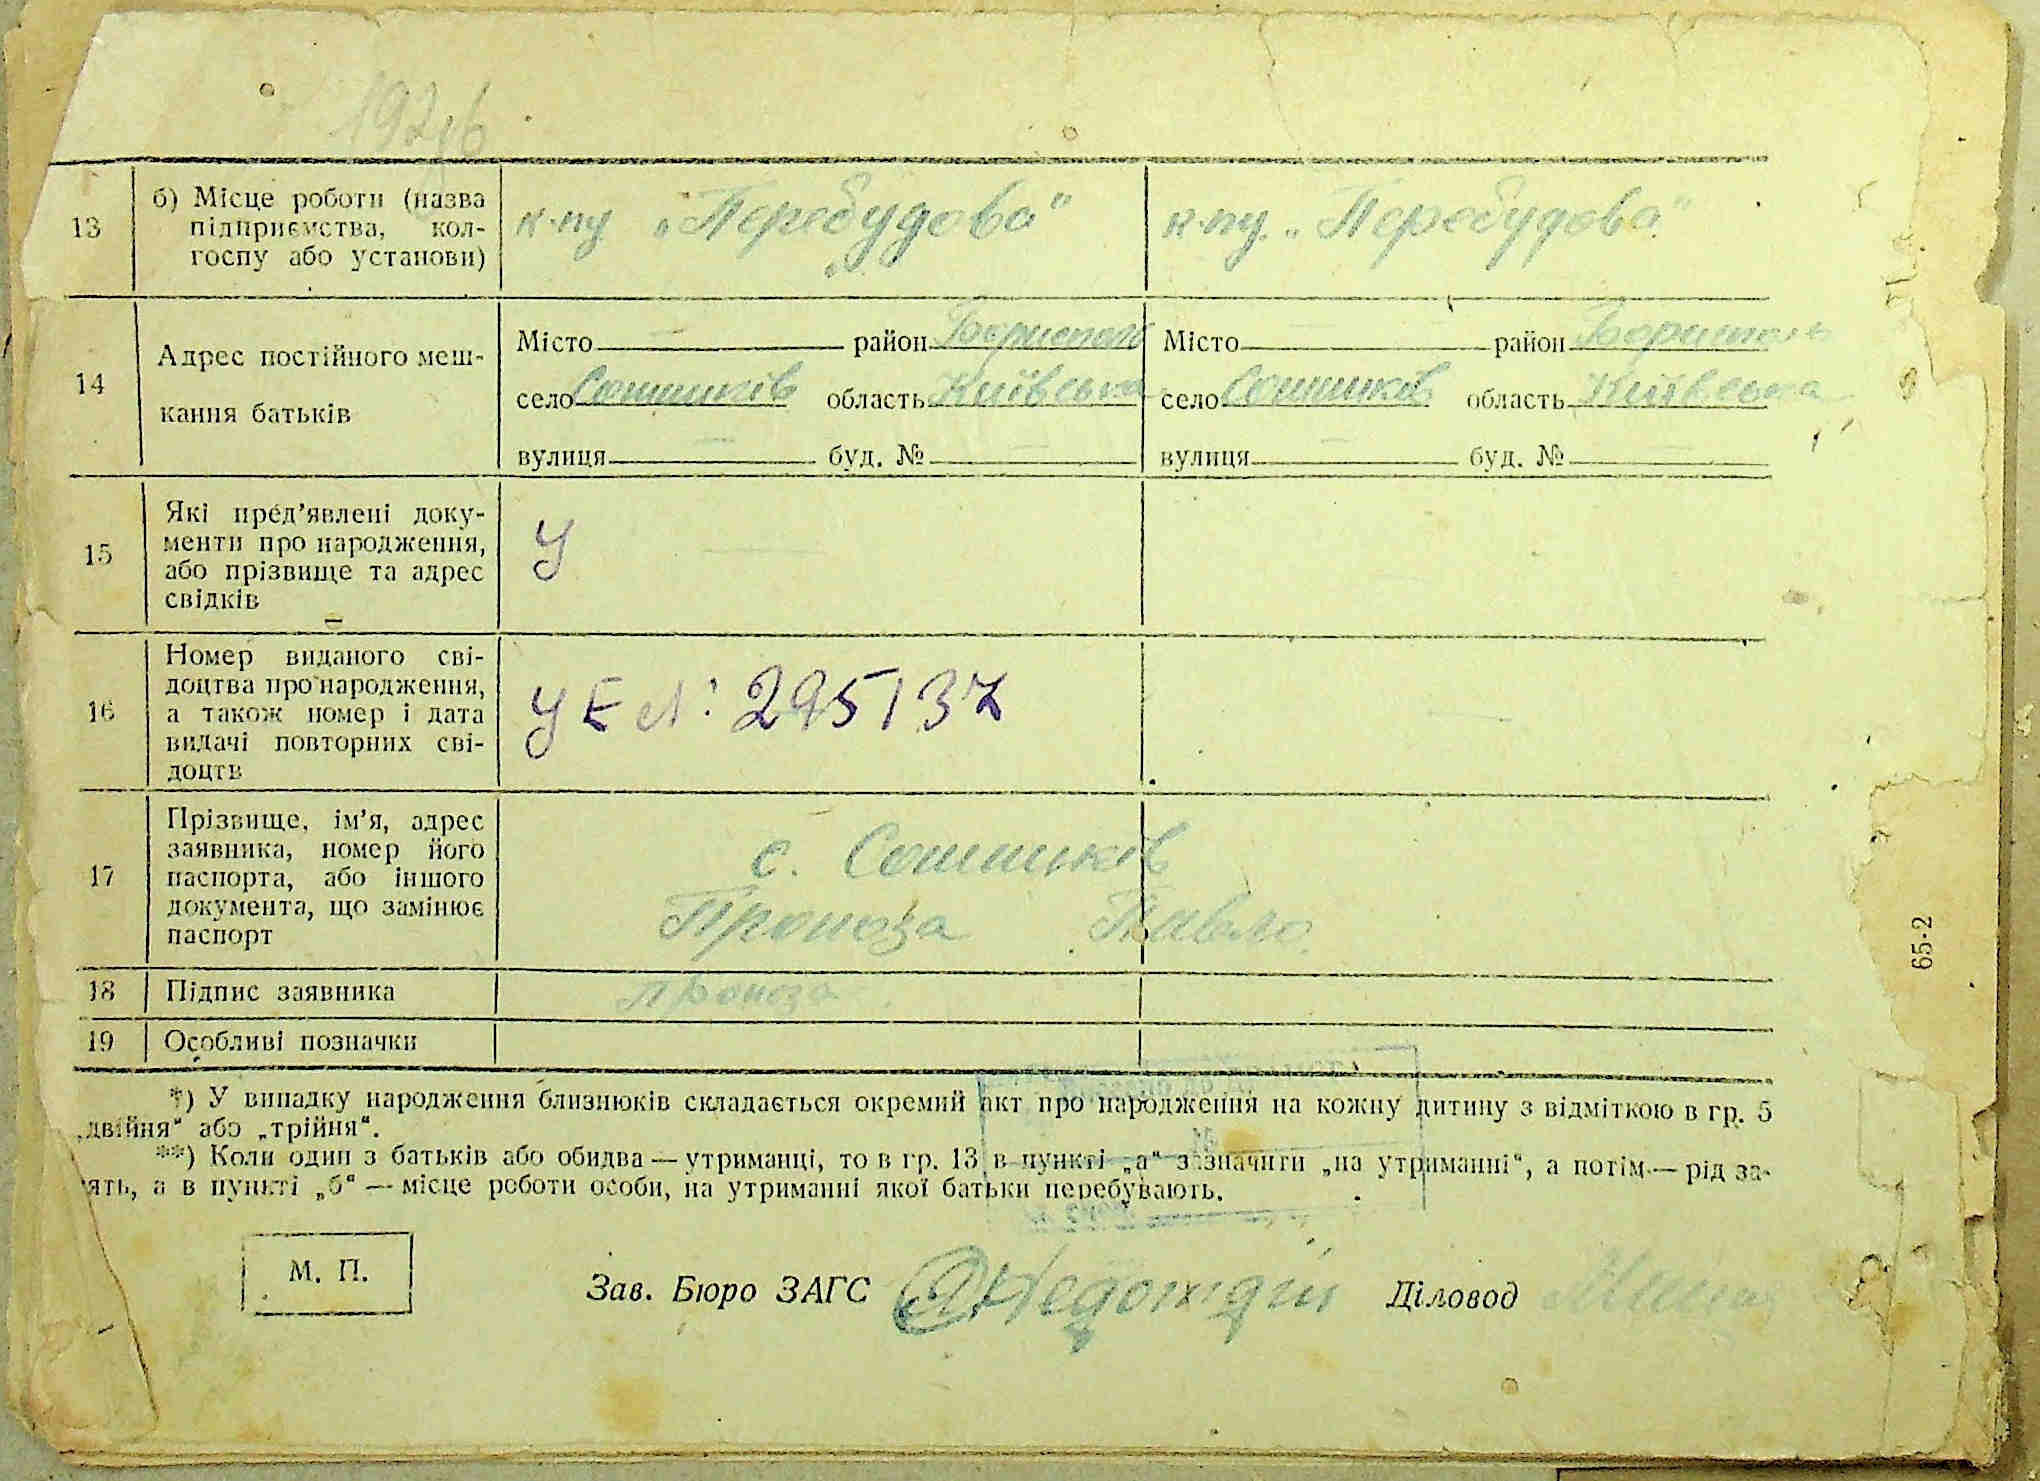 13
б) Місце роботи (назва
підприємства, кол-
госпу або установи)
к-пу „Перебудова"
к-пу „Перебудова"
14
Адрес постійного меш-
кання батьків
Місто район Бориспол
село Сошників область Київська
вулиця буд. №
Місто район Бориспол
село Сошників область Київська
вулиця буд. №
15
Які пред’явлені доку-
менти про народження,
або прізвище та адрес
свідків
У
16
Номер виданого сві-
доцтва про народження,
а також номер і дата
видачі повторних сві-
доцтв
УЕ №: 295137
17
Прізвище, ім’я, адрес
заявника, номер його
паспорта, або іншого
документа, що замінює
паспорт
с. Сошників
Проноза Павло
18
Підпис заявника
Проноза
19
Особливі позначки
*) У випадку народження близнюків складається окремий акт про народження на кожну дитину з відміткою в гр. 5
„двійня“ або „трійня“.
**) Коли один з батьків або обидва — утриманці, то в гр. 13 в пункті „а“ зазначити „на утриманні“, а потім — рід за-
ять, а в пункті „б“ — місце роботи особи, на утриманні якої батьки перебувають.
М. П.
Зав. Бюро ЗАГС
Діловод
65-2